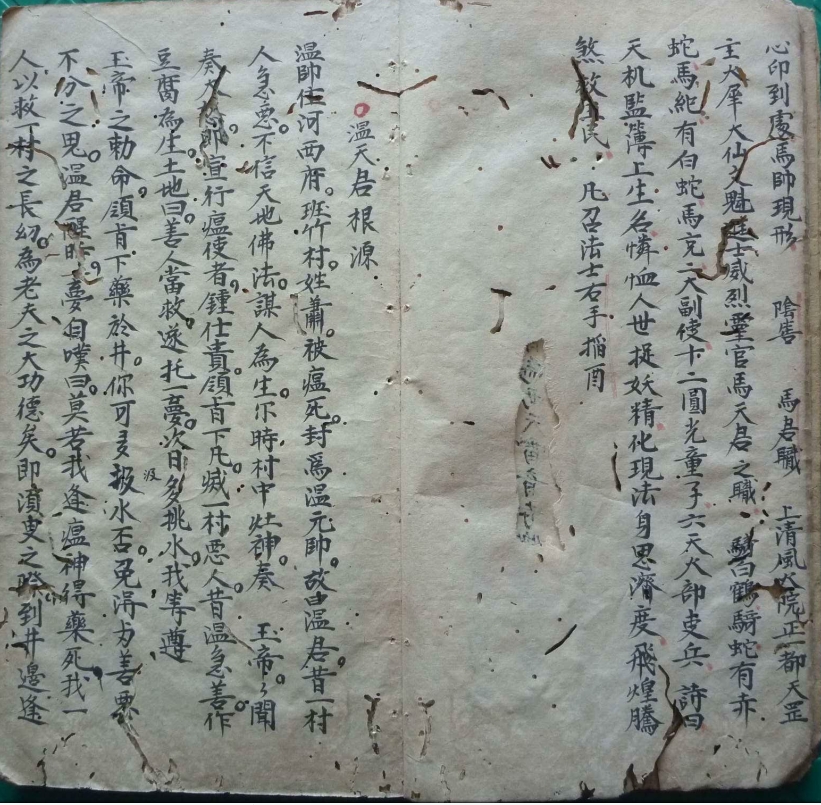 心印到處馬帥現形 陰書 馬君職 上清風火院正一都天罡
主大犀大仙文魁進士威烈靈官馬天君之職 騎白鶴騎蛇有赤
蛇馬純有白蛇馬充二大副使十二圓光童子六天火部吏兵 詩曰
天机監簿上生名憐恤人世捉妖精化現法身思濟度飛煌騰
煞救生民 凡召法士右手搯酉
温天君根源
温帥住河西府班竹村姓蕭被瘟死封為温元帥故曰温君昔一村
人急惡不信天地佛法謀人為生尔時村中灶神奏 玉帝〻聞
奏大怒即宣行瘟使者鍾仕貴領旨下凡滅一村惡人昔温急善作
豆腐為生土地曰善人當救遂托一夢次日多挑水我等尊
汲
玉帝之勅命領旨下藥於井你可多扱水否免得方善惡
不分之鬼温君醒昨夢自嘆曰莫若我逢瘟神得藥死我一
人以救一村之長幼為老天之大功德矣即演叟之際到井邊逢